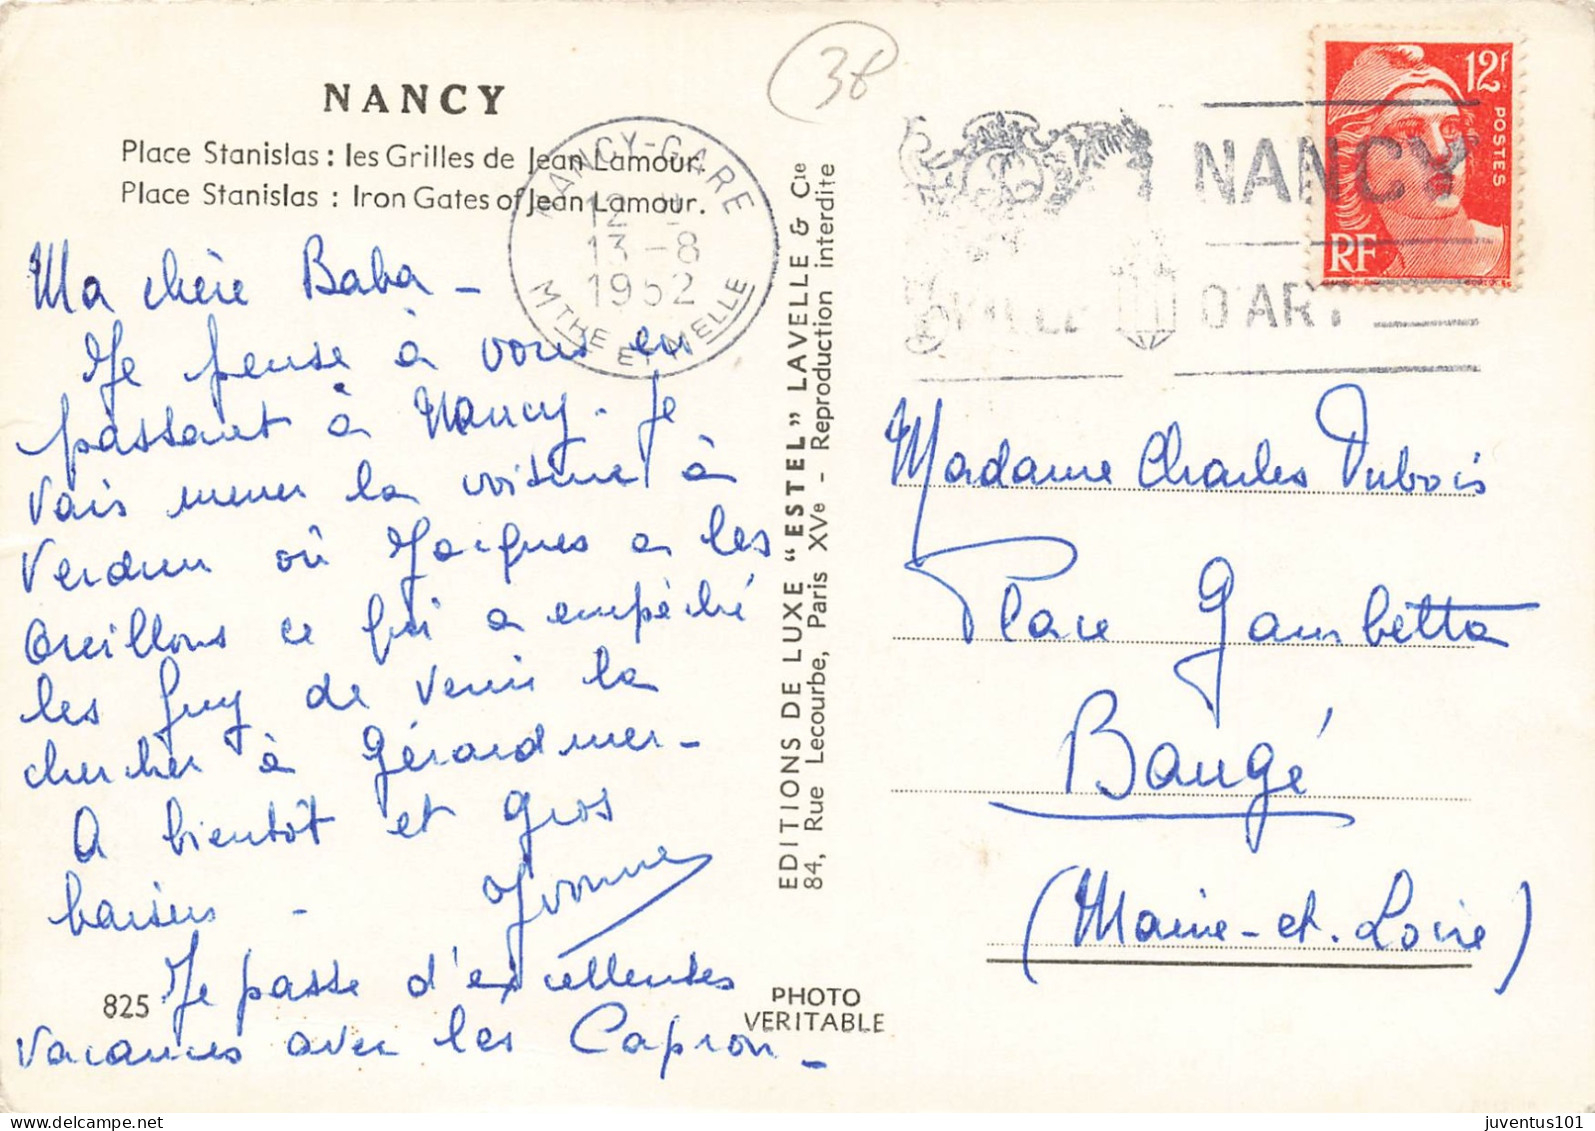 NANCY
Place Stanislas : les Grilles de Jean Lamour.
Place Stanislas : Iron Gates of Jean Lamour.
Ma chère Baba -
Je pense à vous en
passant à Nancy - Je
vais mener la voiture à
Verdun où Jacques a les
oreillons ce qui a empêché
les Guy de venir la
chercher à Gérardmer -
A bientôt et gros
baisers - Yvonne
Je passe d'excellentes
vacances avec les Capron -
825
NANCY-GARE
13-8
1952
MTHE ET MELLE
EDITIONS DE LUXE "ESTEL" LAVELLE & Cie
84, Rue Lecourbe, Paris XVe - Reproduction interdite
PHOTO
VERITABLE
38
NANCY
VILLE D'ART
12F
POSTES
RF
Madame Charles Dubois
Place Gambetta
Baugé
(Maine-et-Loire)
juventus101